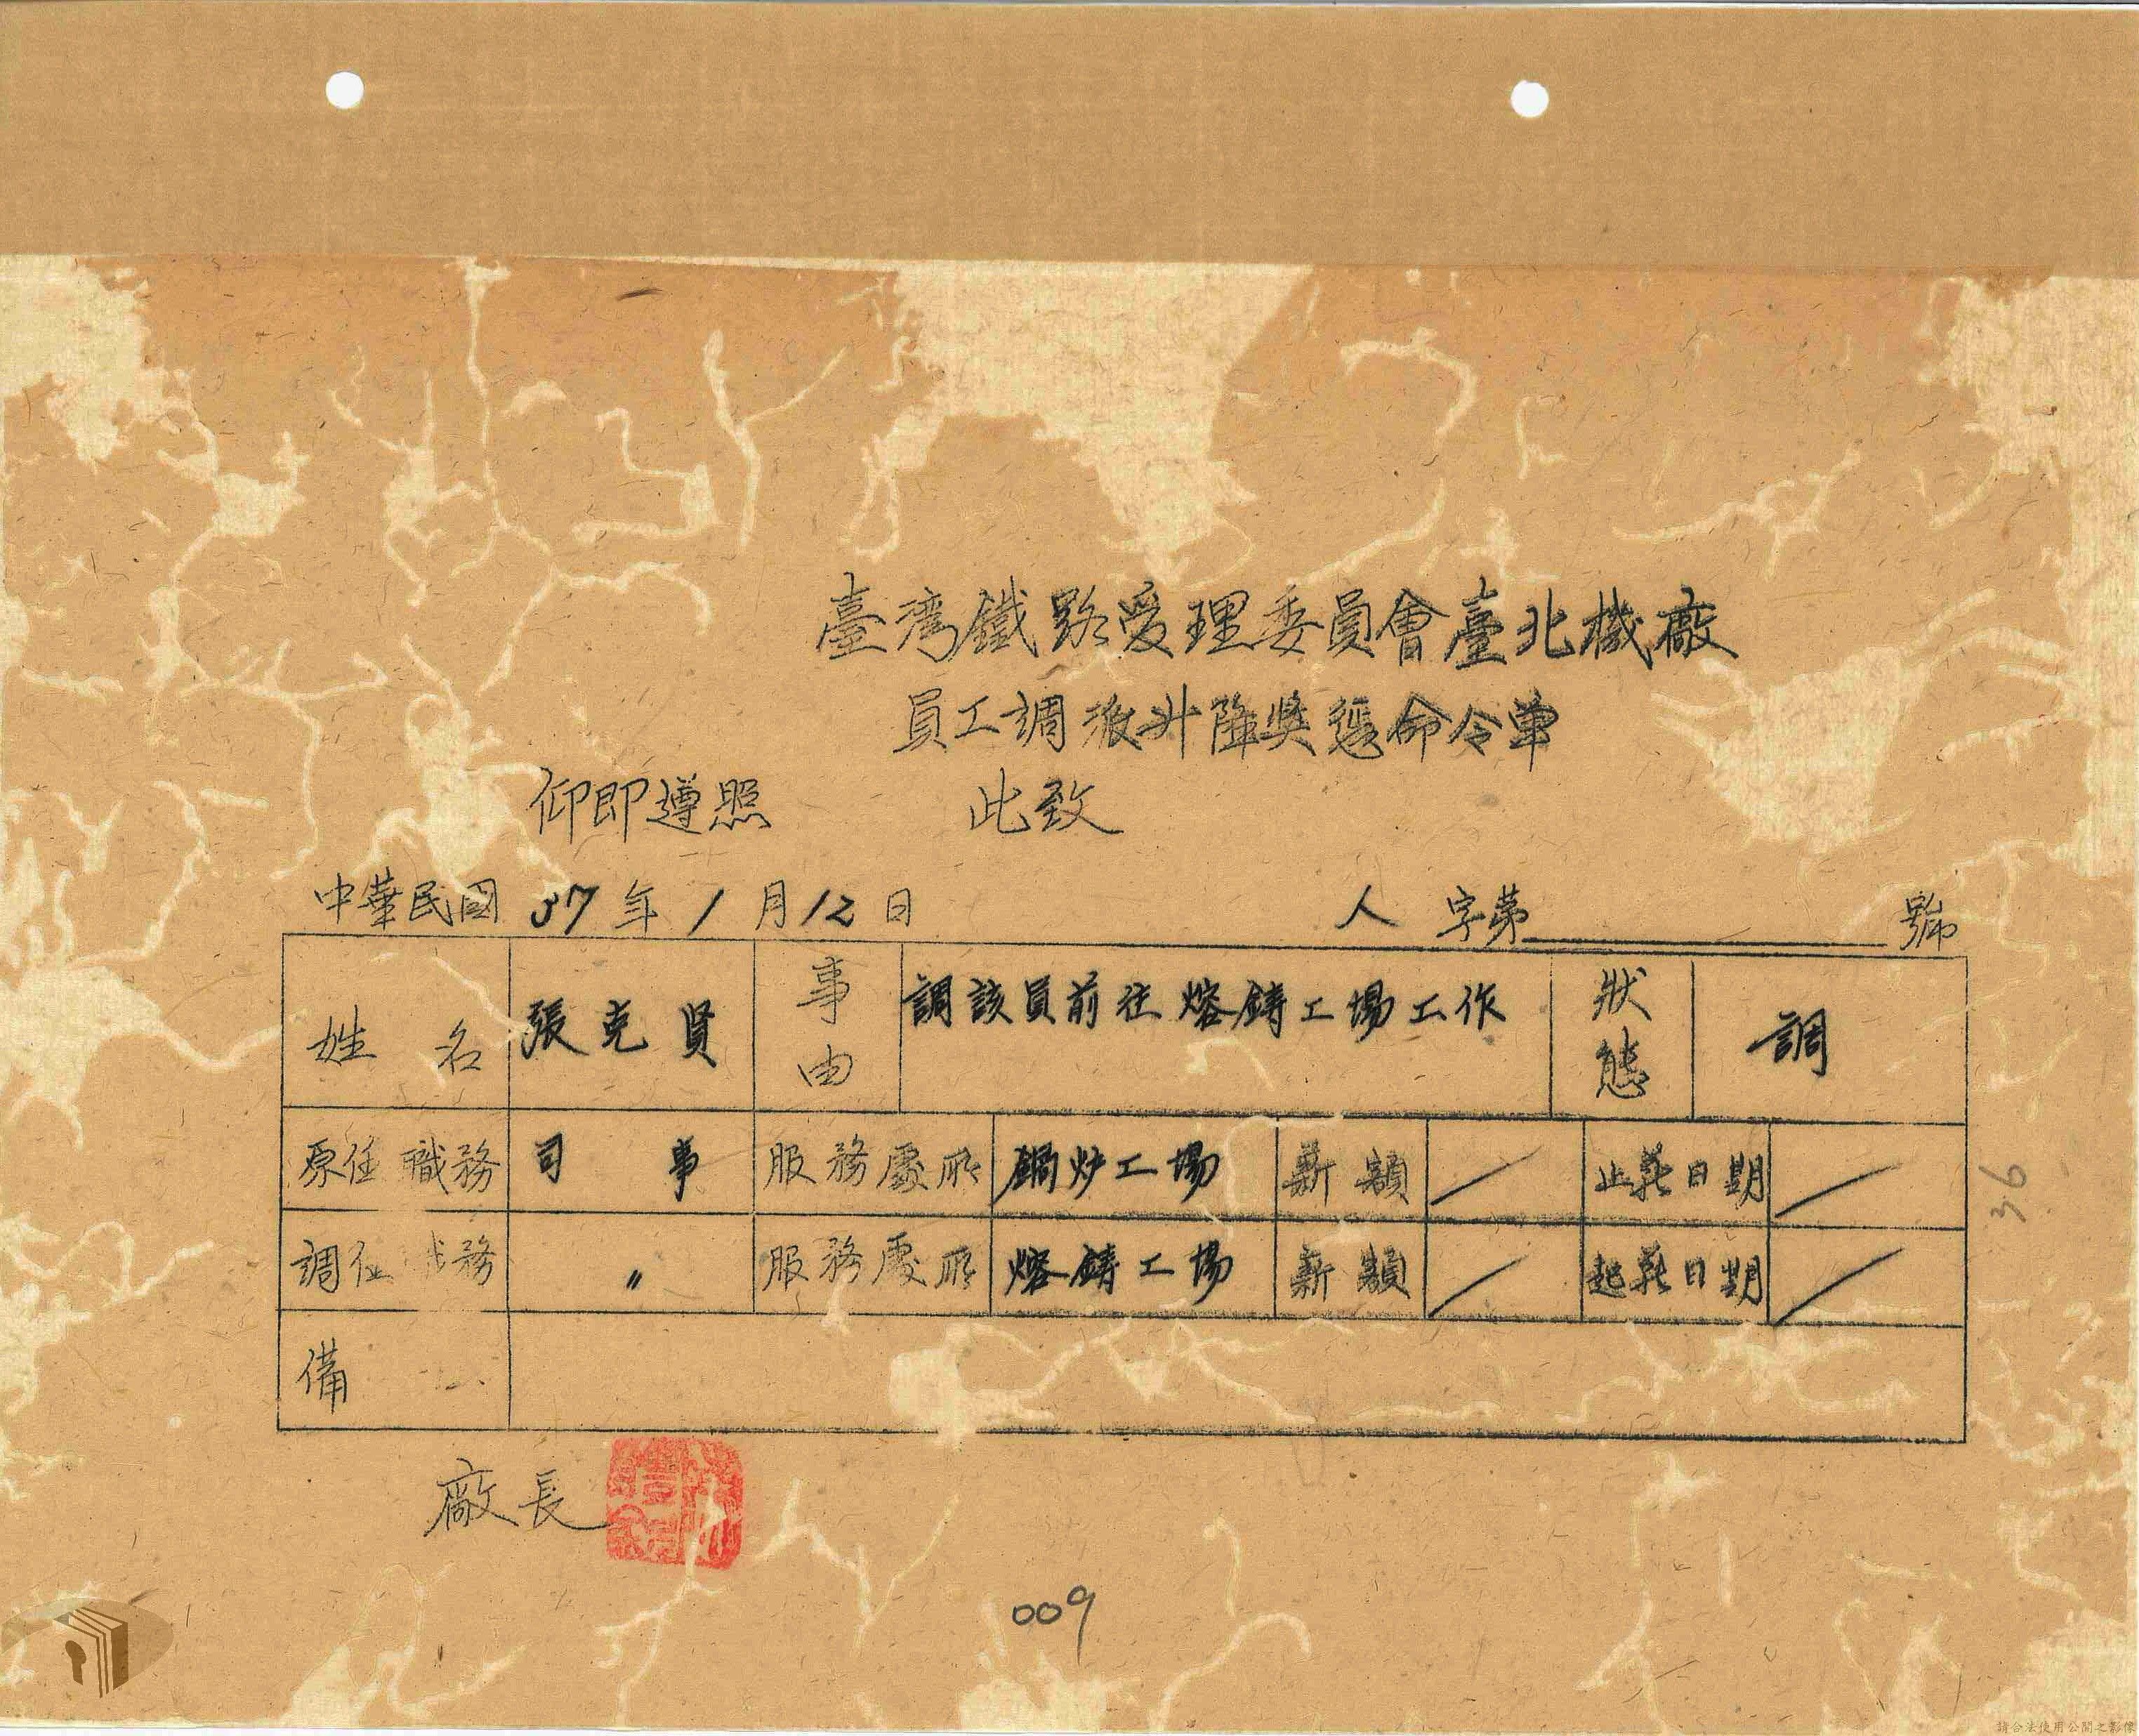 臺灣鐵路受理委員會臺北機廠
員工調派升降獎懲命令單
仰即遵照 此致
中華民國 37 年 1 月 12 日 人 字第 號
姓 名 張克賢 事由 調該員前往熔鑄工場工作 狀態 調
原任 職務 司 事 服務處所 鍋炉工場 薪額 / 止薪日期 /
調任 務 〃 服務處所 熔鑄工場 薪額 / 起薪日期 /
備
廠長
36
009
請合法使用公開之影像